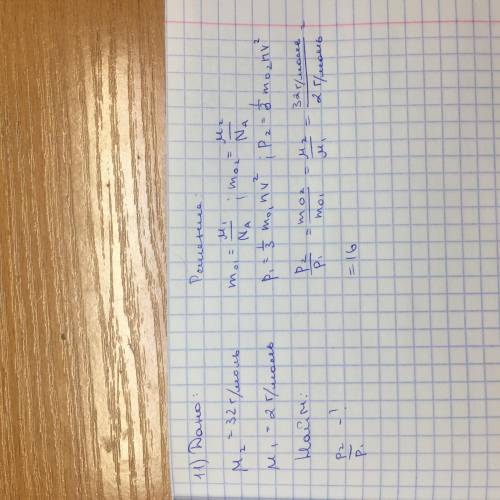 11) Дано:
μ₂ = 32 г/моль
μ₁ = 2 г/моль
Найти:
p₂/p₁ - ?
Решение:
m₀₁ = μ₁/N_A ; m₀₂ = μ₂/N_A
p₁ = 1/3 m₀₁ n v² ; p₂ = 1/3 m₀₂ n v²
p₂/p₁ = m₀₂/m₀₁ = μ₂/μ₁ = 32 г/моль / 2 г/моль =
= 16